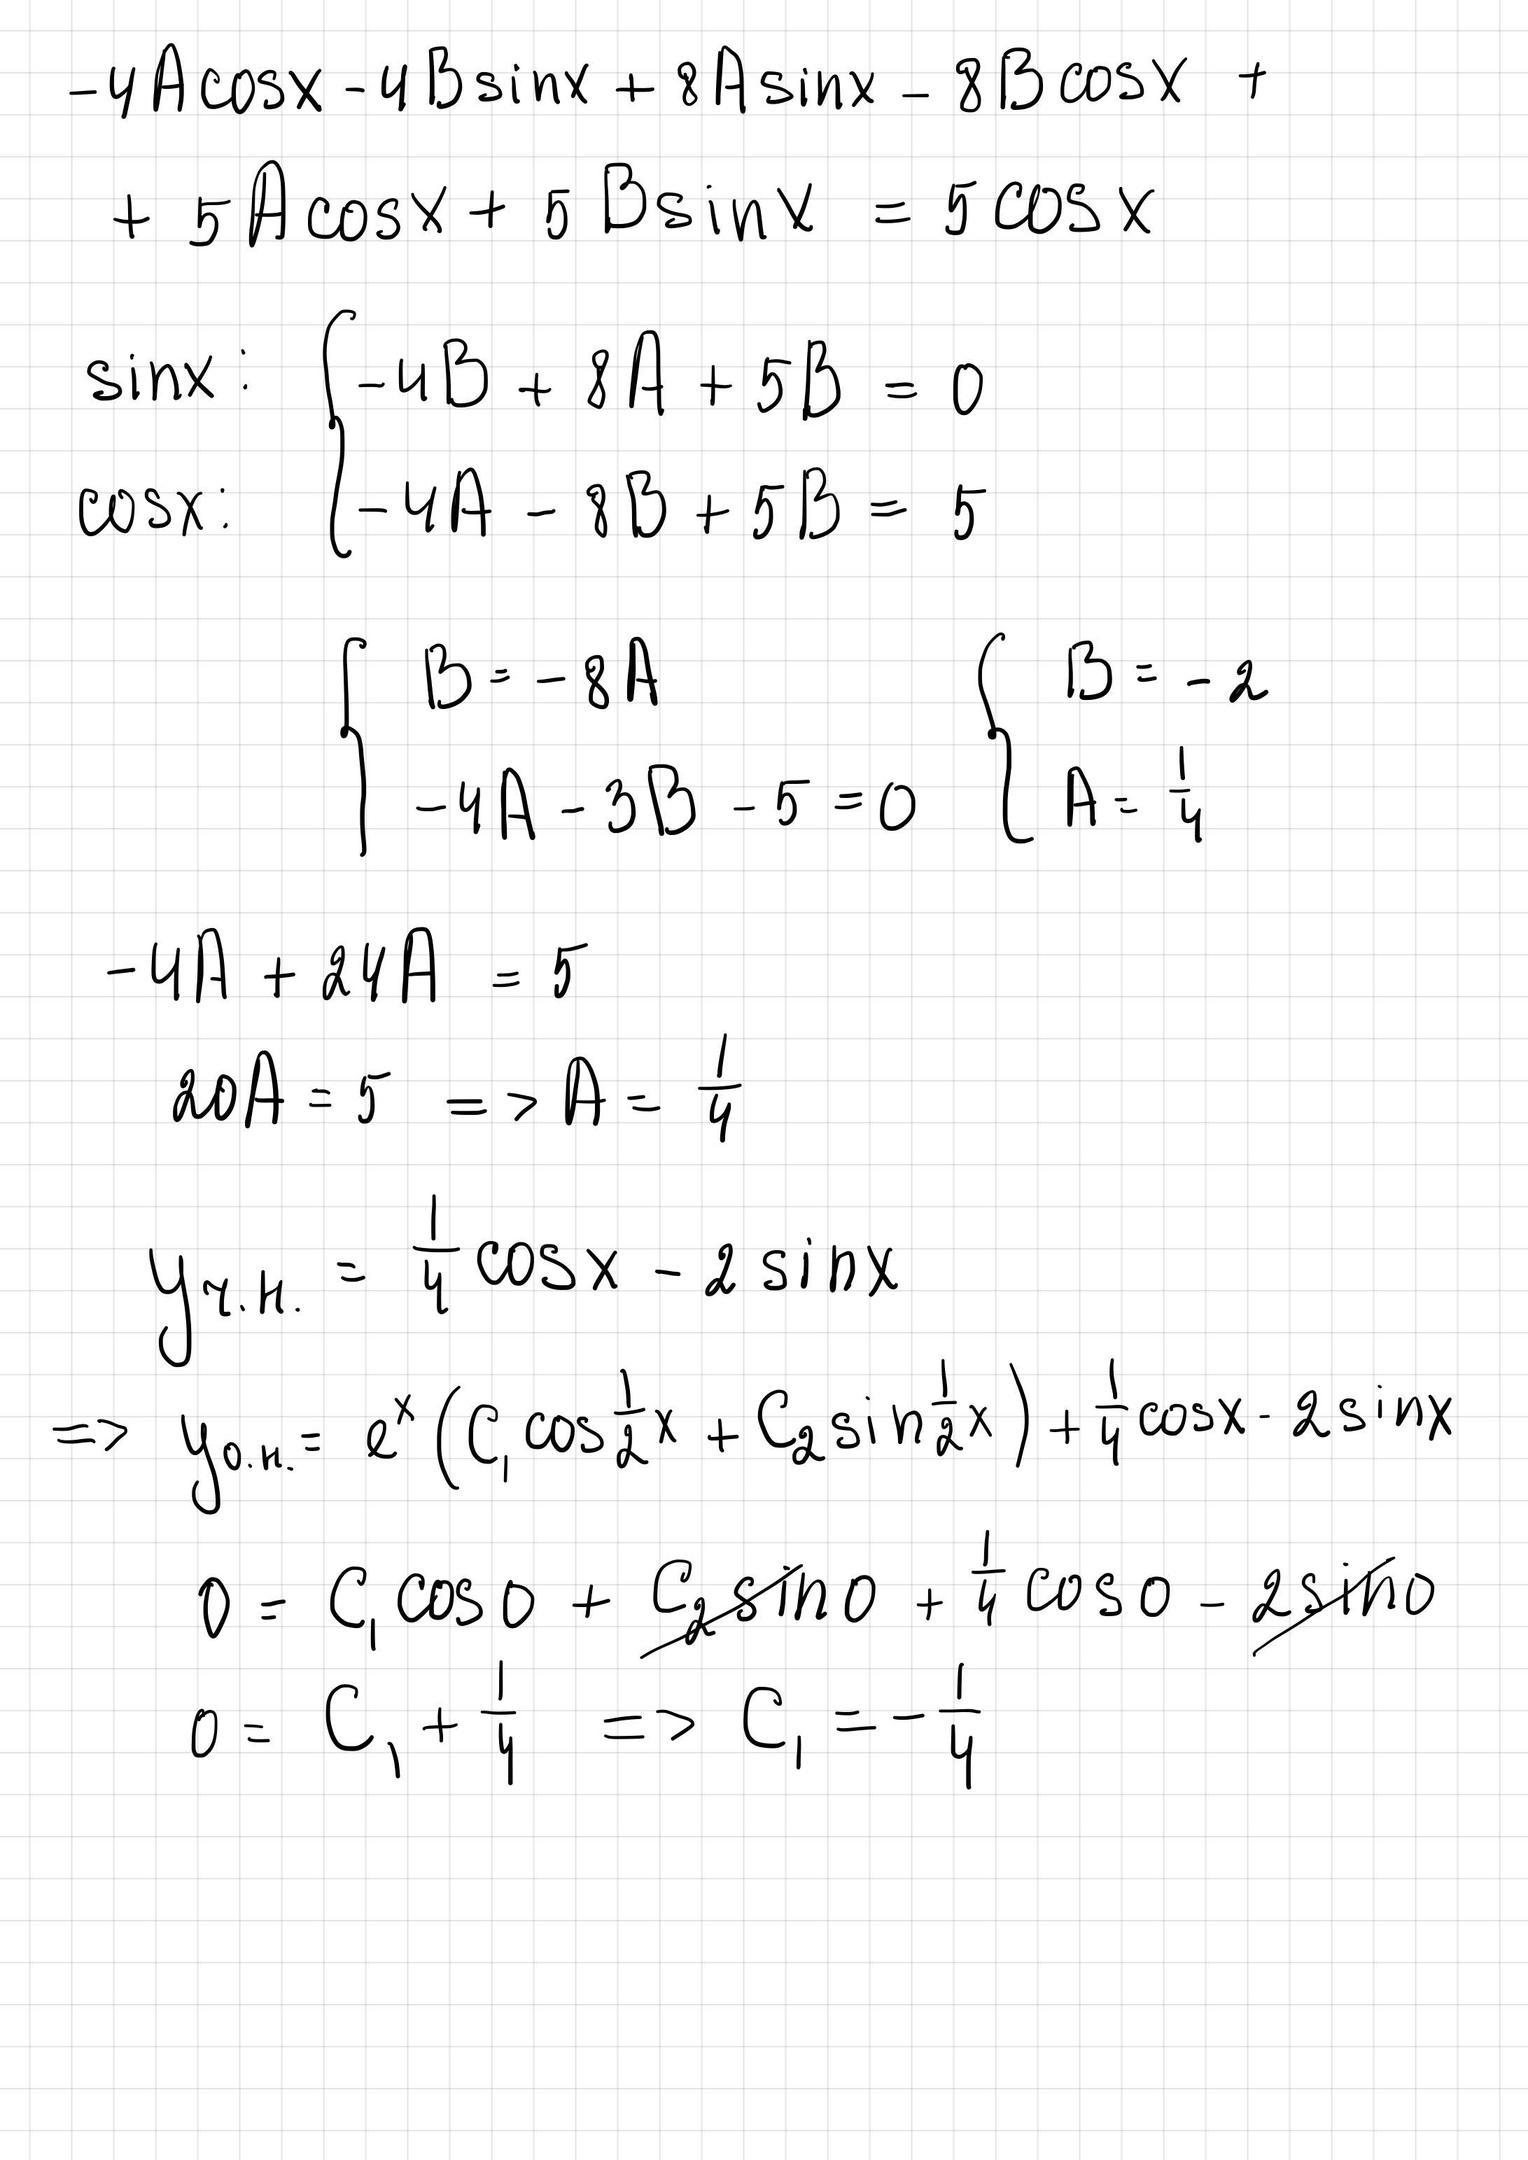 -4Acosx - 4Bsinx + 8Asinx - 8Bcosx +
+ 5Acosx + 5Bsinx = 5cosx
sinx: { -4B + 8A + 5B = 0
cosx: { -4A - 8B + 5B = 5
{ B = -8A { B = -2
{ -4A - 3B - 5 = 0 { A = 1/4
-4A + 24A = 5
20A = 5 => A = 1/4
yч.н. = 1/4 cosx - 2sinx
=> yо.н. = e^x (C₁cos 1/2 x + C₂sin 1/2 x) + 1/4 cosx - 2sinx
0 = C₁cos0 + C₂sin0 + 1/4 cos0 - 2sin0
0 = C₁ + 1/4 => C₁ = - 1/4